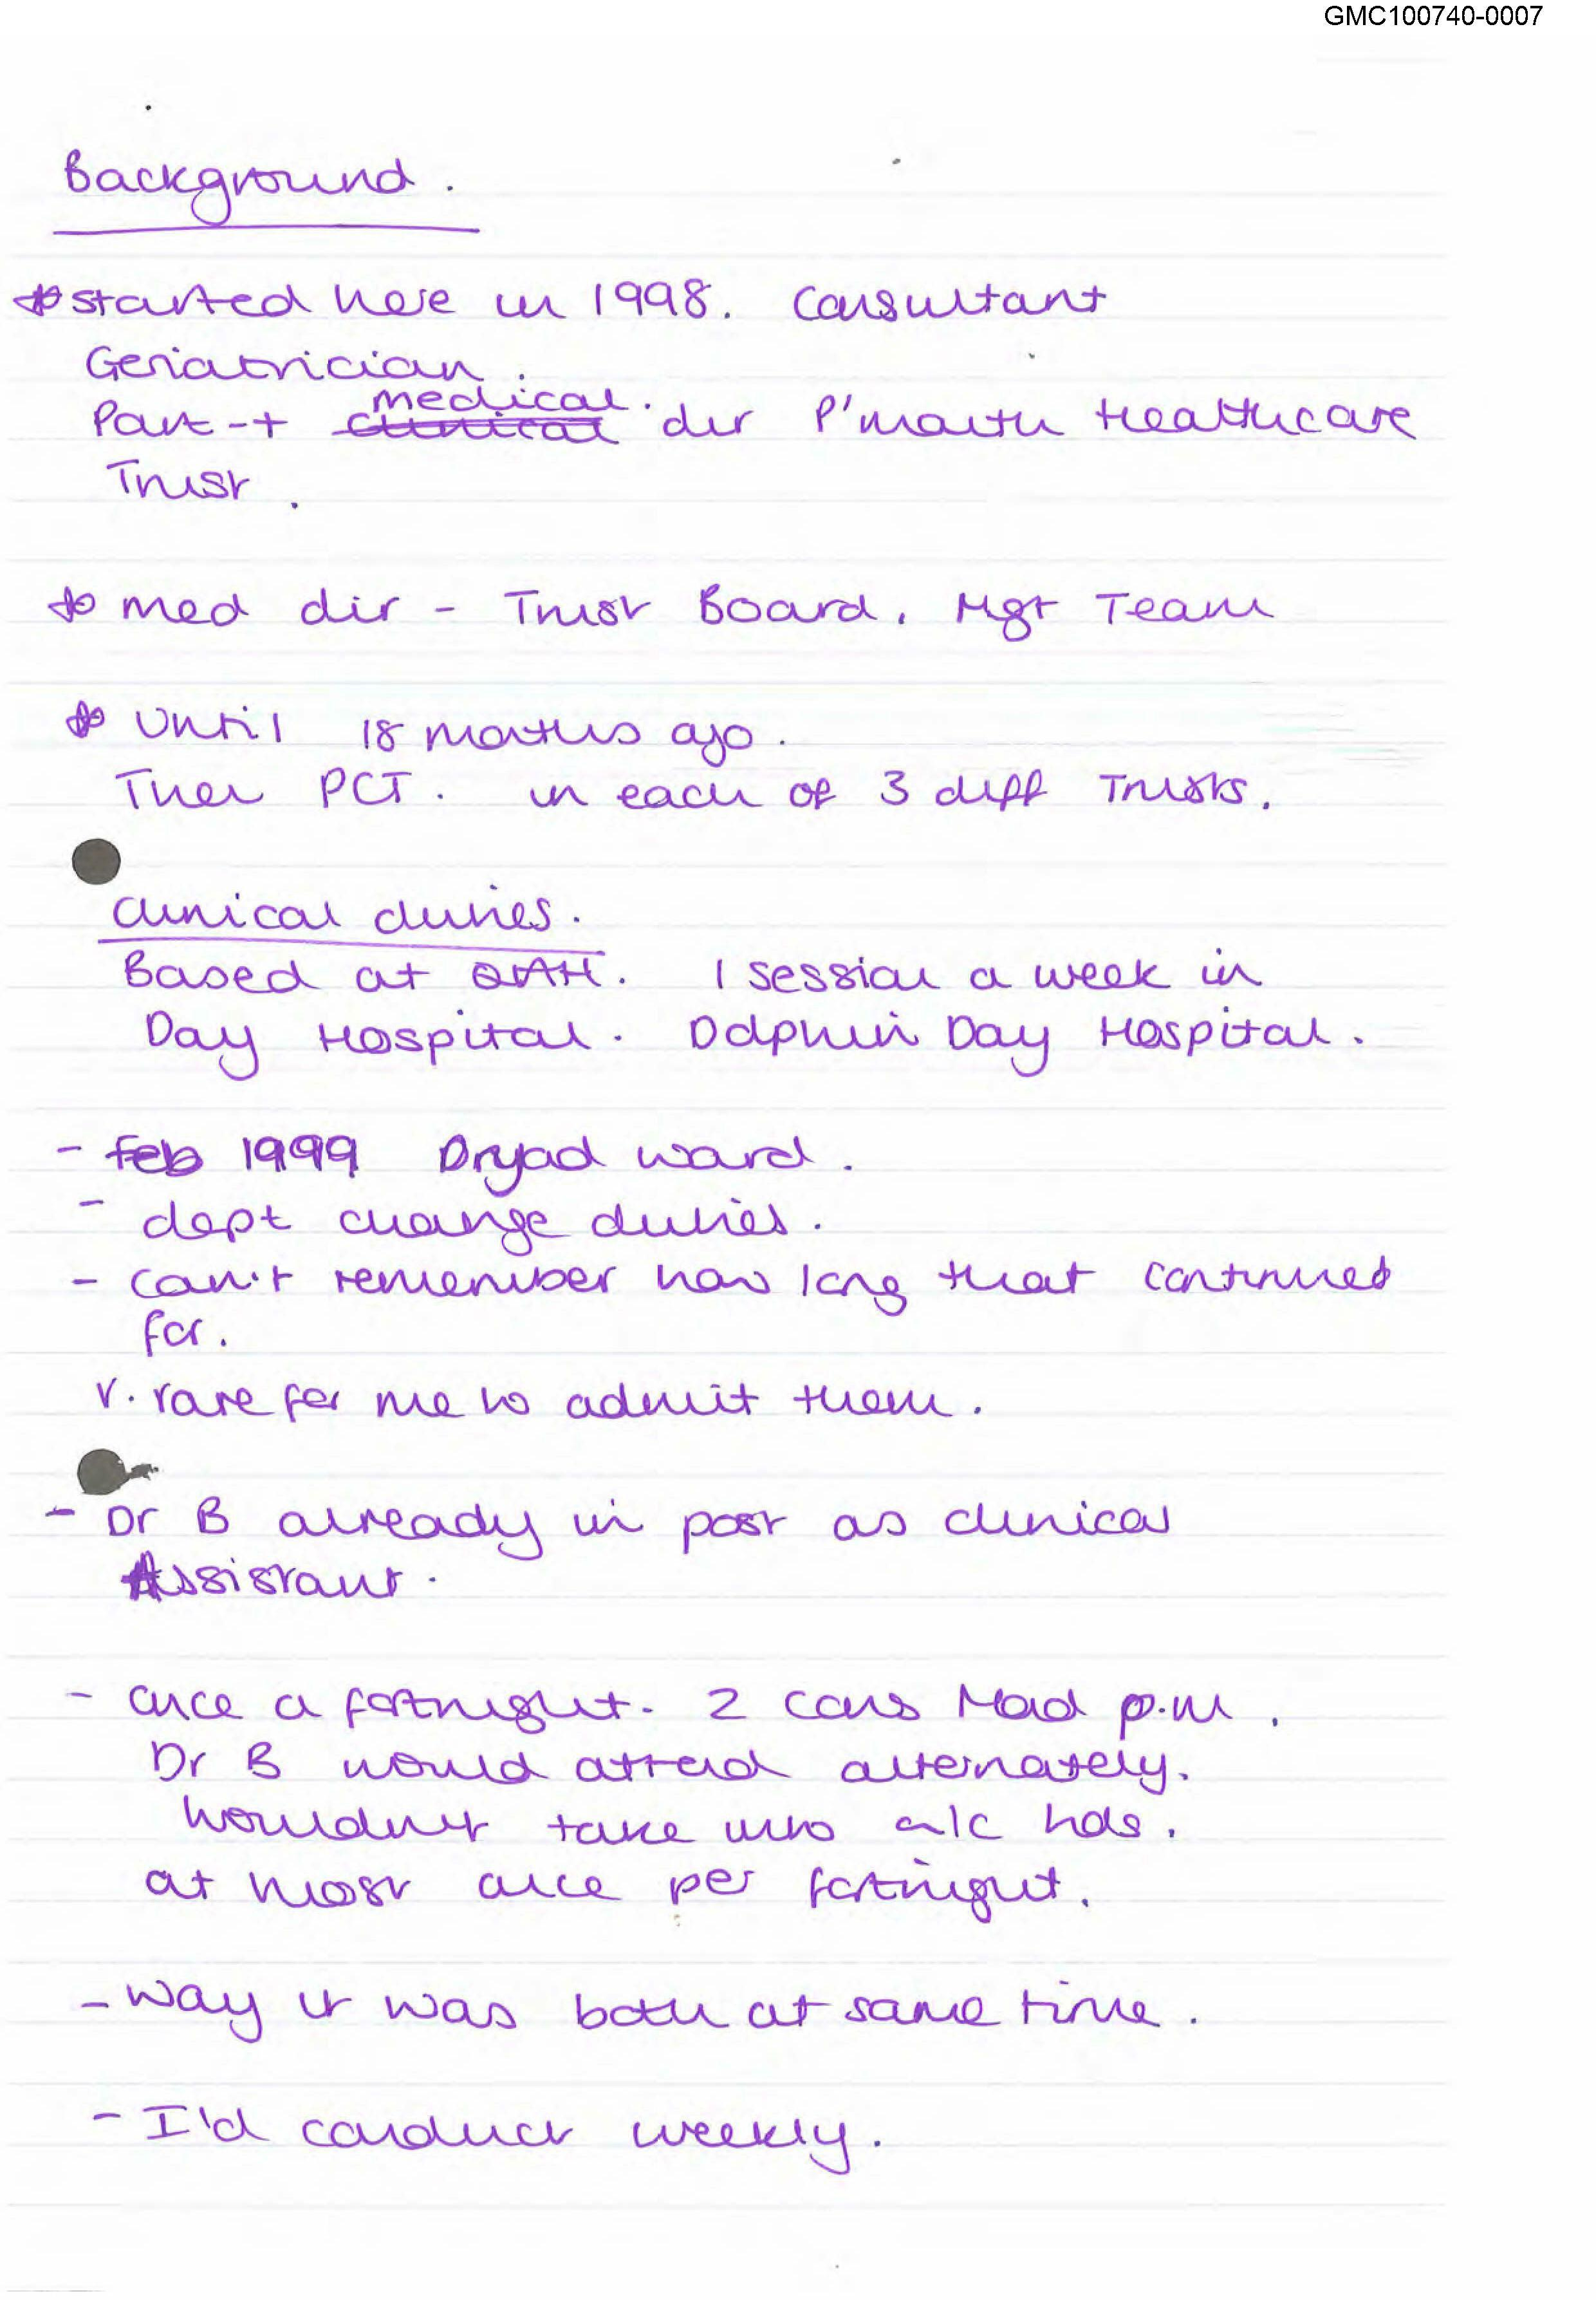 GMC100740-0007
Background.
* started here in 1998. Consultant
Geriatrician.
medical.
Part-t clinical dir P'mouth Healthcare
Trust.
* med dir - Trust Board. Mgt Team
* Until 18 months ago.
Then PCT. in each of 3 diff Trusts.
Clinical duties.
Based at QAH. 1 session a week in
Day Hospital. Dolphin Day Hospital.
- Feb 1999 Dryad ward.
- dept change duties.
- can't remember how long that continued
for.
V. rare for me to admit them.
- Dr B already in post as clinical
Assistant.
- once a fortnight. 2 cons Mond p.m.
Dr B would attend alternately.
Wouldn't take into a/c hols.
at most once per fortnight.
- Way it was both at same time.
- I'd conduct weekly.